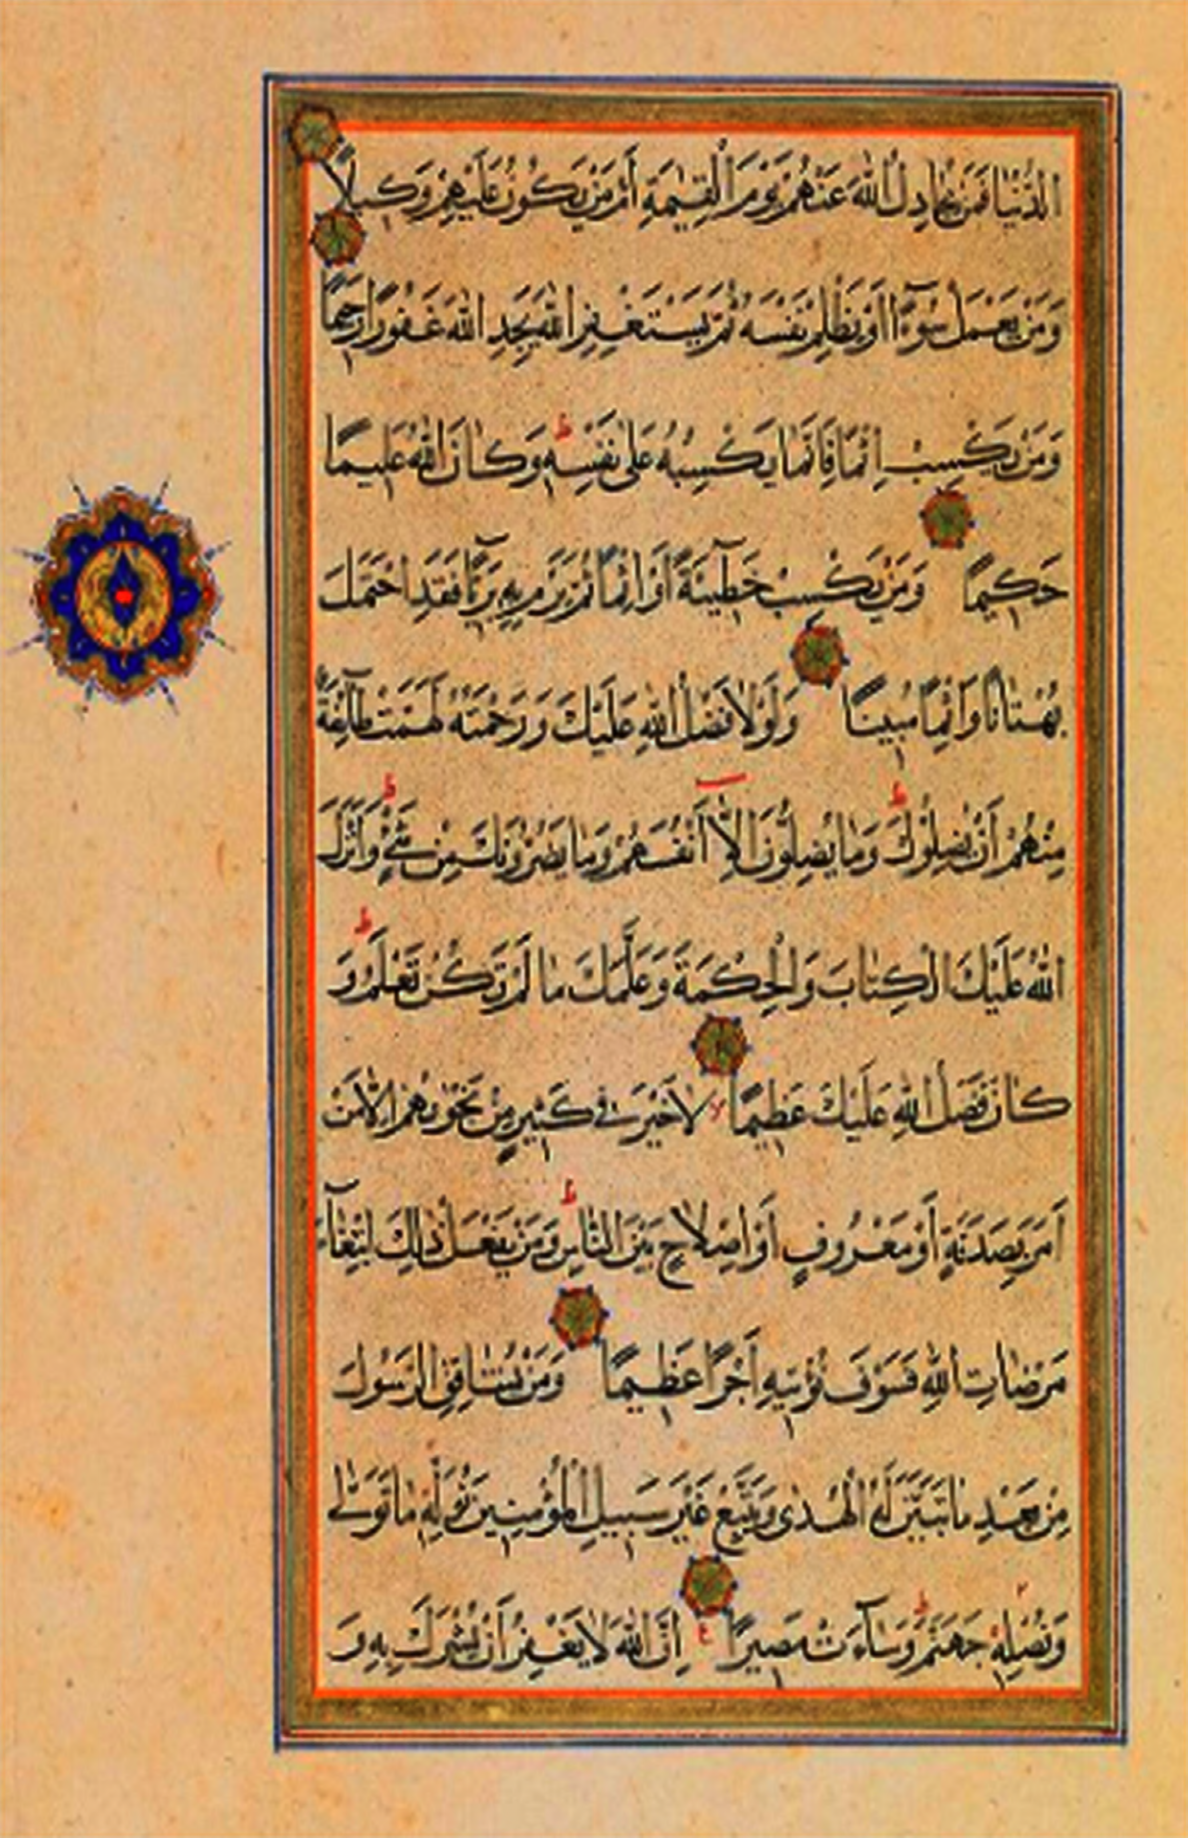 الدُّنْيَا فَمَنْ يُجَادِلُ اللّٰهَ عَنْهُمْ يَوْمَ الْقِيٰمَةِ أَمْ مَنْ يَكُونُ عَلَيْهِمْ وَكِيلًا
وَمَنْ يَعْمَلْ سُوٓءًا أَوْ يَظْلِمْ نَفْسَهُ ثُمَّ يَسْتَغْفِرِ اللّٰهَ يَجِدِ اللّٰهَ غَفُورًا رَحِيمًا
وَمَنْ يَكْسِبْ إِثْمًا فَإِنَّمَا يَكْسِبُهُ عَلٰى نَفْسِهِ ط وَكَانَ اللّٰهُ عَلِيمًا
حَكِيمًا وَمَنْ يَكْسِبْ خَطِيٓئَةً أَوْ إِثْمًا ثُمَّ يَرْمِ بِهِ بَرِيٓئًا فَقَدِ احْتَمَلَ
بُهْتَانًا وَإِثْمًا مُبِينًا وَلَوْلَا فَضْلُ اللّٰهِ عَلَيْكَ وَرَحْمَتُهُ لَهَمَّتْ طَآئِفَةٌ
مِنْهُمْ أَنْ يُضِلُّوكَ ط وَمَا يُضِلُّونَ إِلَّآ أَنْفُسَهُمْ وَمَا يَضُرُّونَكَ مِنْ شَيْءٍ ط وَأَنْزَلَ
اللّٰهُ عَلَيْكَ الْكِتَابَ وَالْحِكْمَةَ وَعَلَّمَكَ مَا لَمْ تَكُنْ تَعْلَمُ ط وَ
كَانَ فَضْلُ اللّٰهِ عَلَيْكَ عَظِيمًا لَا خَيْرَ فِي كَثِيرٍ مِنْ نَجْوٰىهُمْ إِلَّا مَنْ
أَمَرَ بِصَدَقَةٍ أَوْ مَعْرُوفٍ أَوْ إِصْلَاحٍ بَيْنَ النَّاسِ ط وَمَنْ يَفْعَلْ ذٰلِكَ ابْتِغَآءَ
مَرْضَاتِ اللّٰهِ فَسَوْفَ نُؤْتِيهِ أَجْرًا عَظِيمًا وَمَنْ يُشَاقِقِ الرَّسُولَ
مِنْ بَعْدِ مَا تَبَيَّنَ لَهُ الْهُدٰى وَيَتَّبِعْ غَيْرَ سَبِيلِ الْمُؤْمِنِينَ نُوَلِّهِ مَا تَوَلّٰى
وَنُصْلِهِ جَهَنَّمَ ط وَسَآءَتْ مَصِيرًا ع إِنَّ اللّٰهَ لَا يَغْفِرُ أَنْ يُشْرَكَ بِهِ وَ